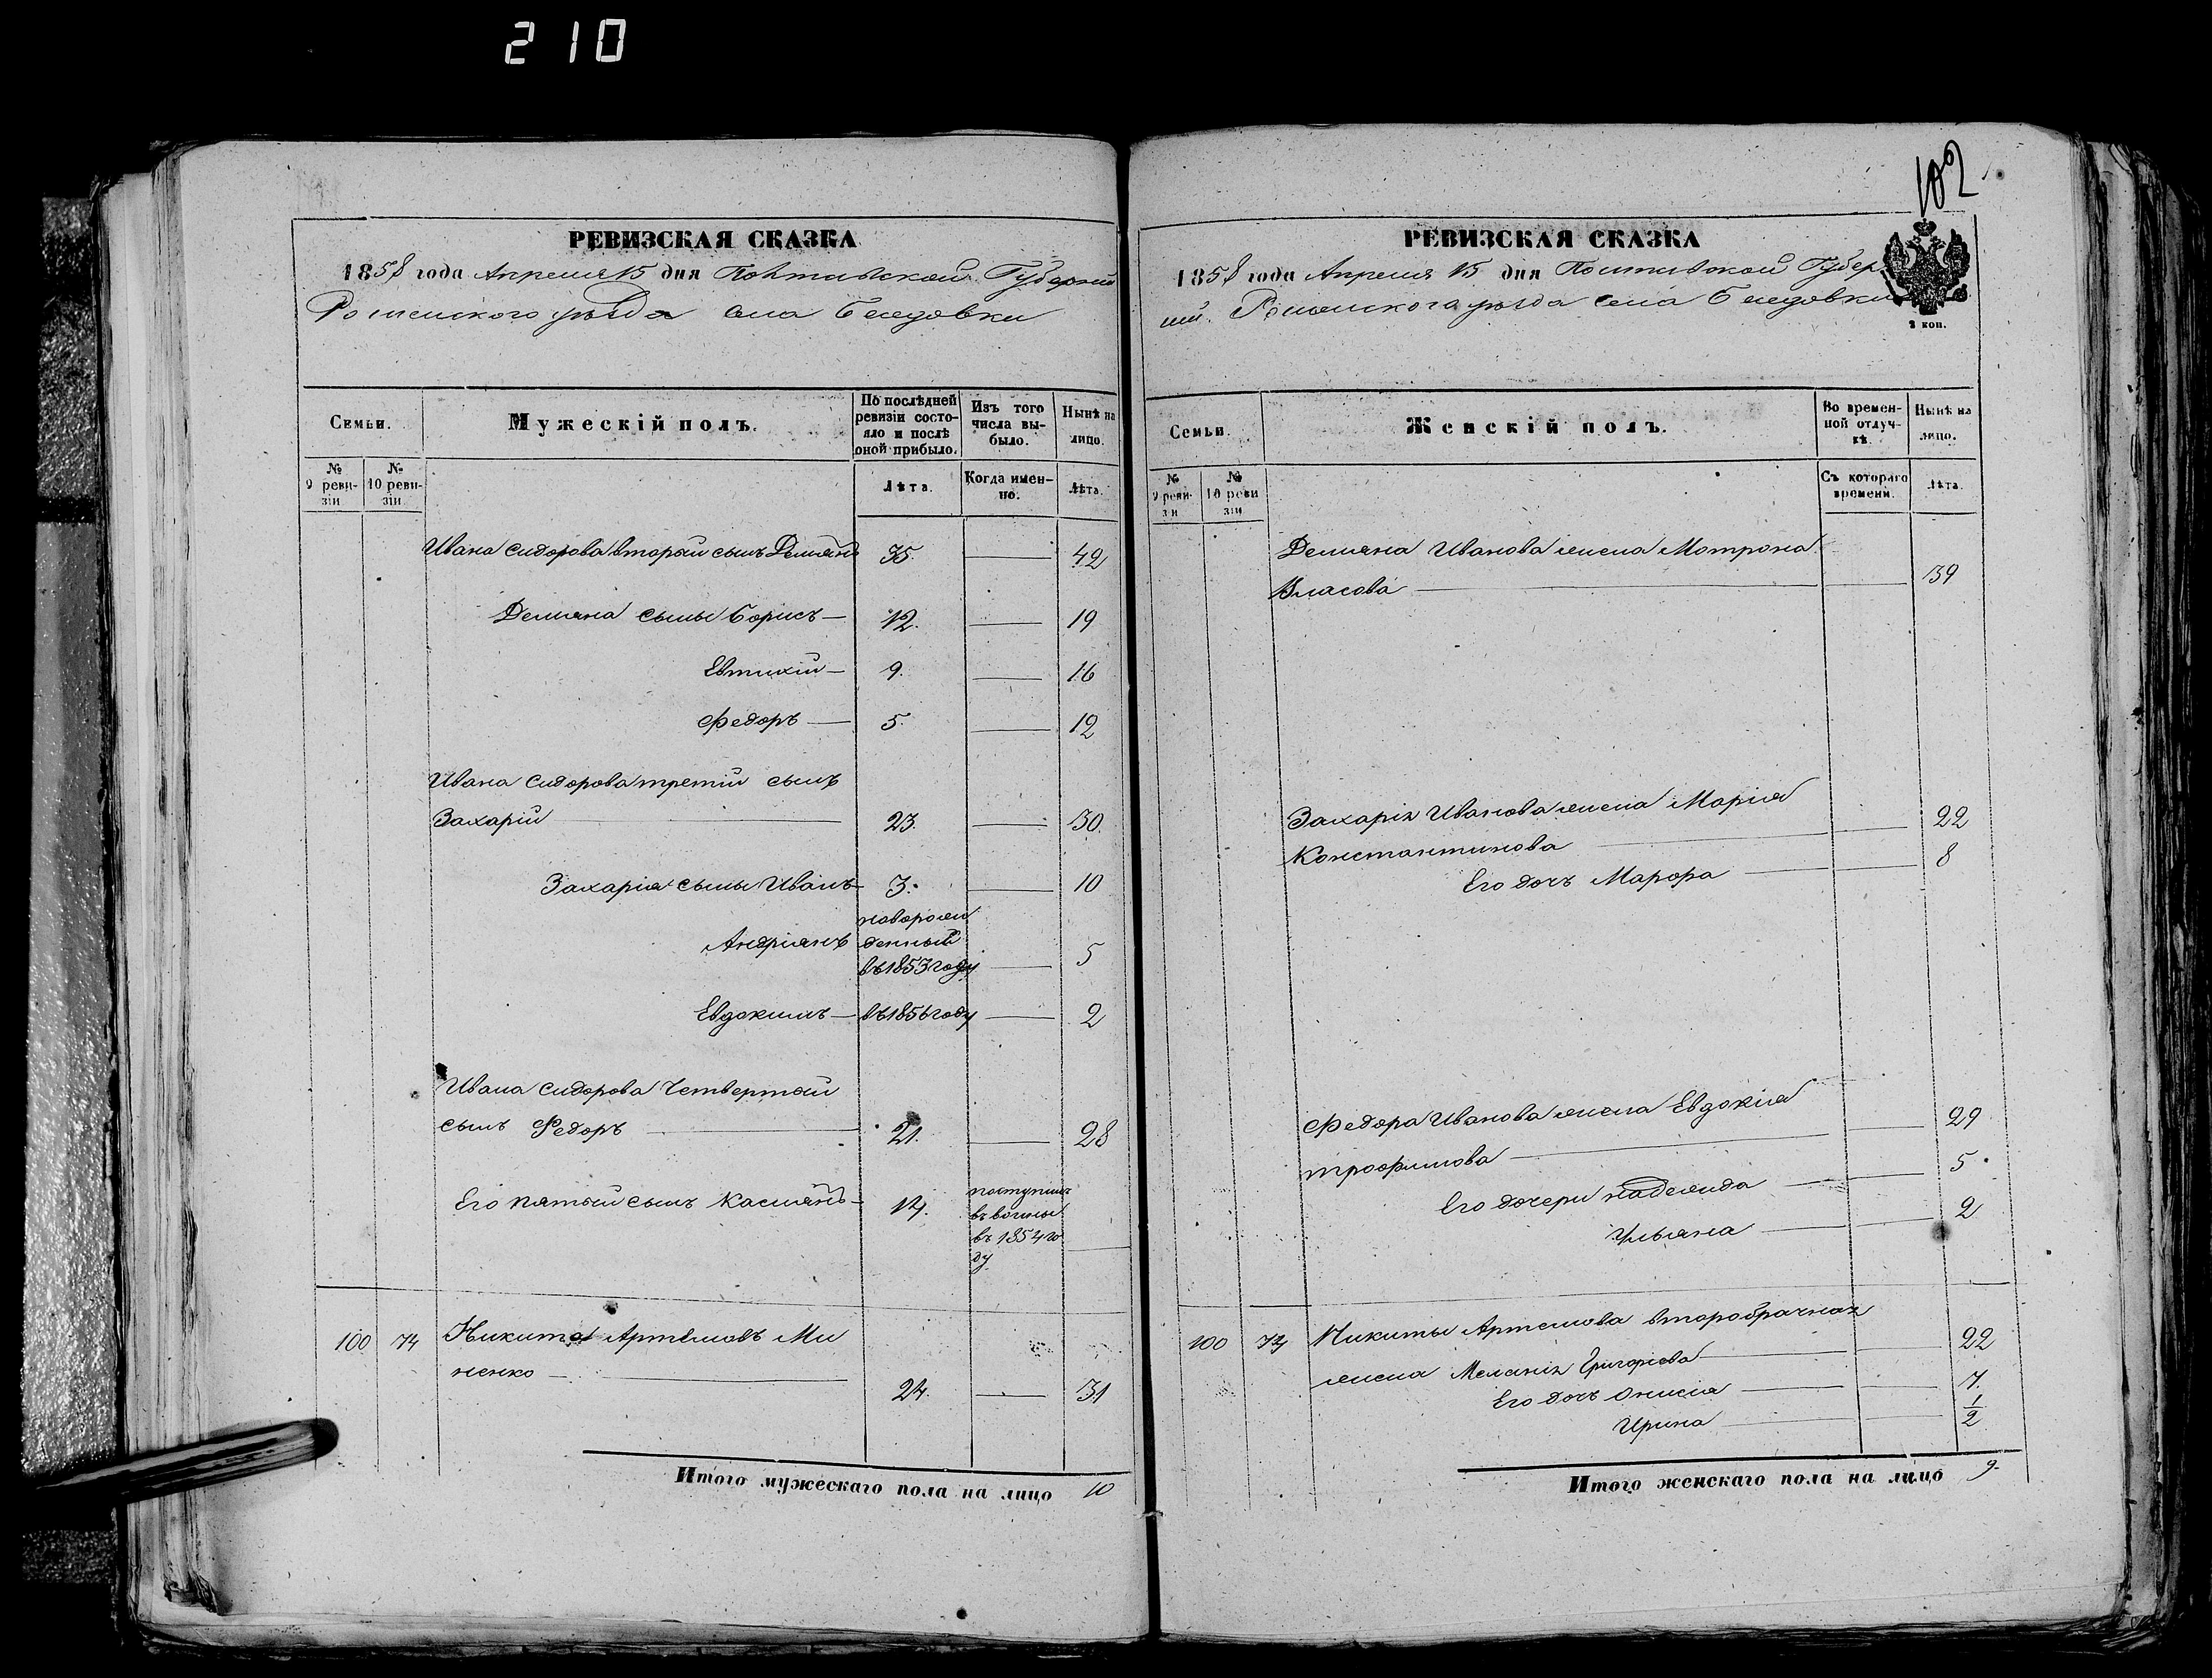 210
РЕВИЗСКАЯ СКАЗКА
1858 года Апреля 15 дня Полтавской Губерніи
Роменского уѣзда села Беседовки
Семьи.
Мужескій полъ.
По послѣдней ревизіи состояло и послѣ оной прибыло.
Изъ того числа выбыло.
Нынѣ на лицо.
№ 9 ревизіи
№ 10 ревизіи
Лѣта.
Когда именно.
Лѣта.
Ивана Сидорова второй сынъ Демянъ 35. — 42
Демяна сыны Борисъ — 12. — 19
Евтихій — 9. — 16
Федоръ — 5. — 12
Ивана Сидорова третій сынъ
Захарій — 23. — 30.
Захарія сыны Иванъ 3. — 10
новорож
Андріянъ денный — 5
въ 1853 году
Евдокимъ — въ 1856 году — 2
Ивана Сидорова Четвертый
сынъ Федоръ — 21. — 28
Его пятый сынъ Касіянъ — 14. поступил
въ воины
въ 1854 го
ду. —
100 74 Никита Артемовъ Ми
ненко — 24. — 31
Итого мужескаго пола на лицо 10
102
РЕВИЗСКАЯ СКАЗКА
1858 года Апреля 15 дня Полтавской Губер
ніи. Роменского уѣзда села Беседовки
2 коп.
Семьи.
Женскій полъ.
Во временной отлучкѣ.
Нынѣ на лицо.
№ 9 ревизіи
№ 10 ревизіи
Съ котораго времени.
Лѣта.
Демяна Иванова жена Мотрона
Власова — — 39
Захарія Иванова жена Марія
Константинова — — 22
Его дочь Марфа — — 8
Федора Иванова жена Евдокія
Трофимова — — 29
Его дочери Надежида — — 5
Ульяна — — 2
100 74 Никиты Артемова второбрачная
жена Меланія Григорьева — — 22
Его дочь Онисія — — 7.
Ирина — — 1/2
Итого женскаго пола на лицо 9.